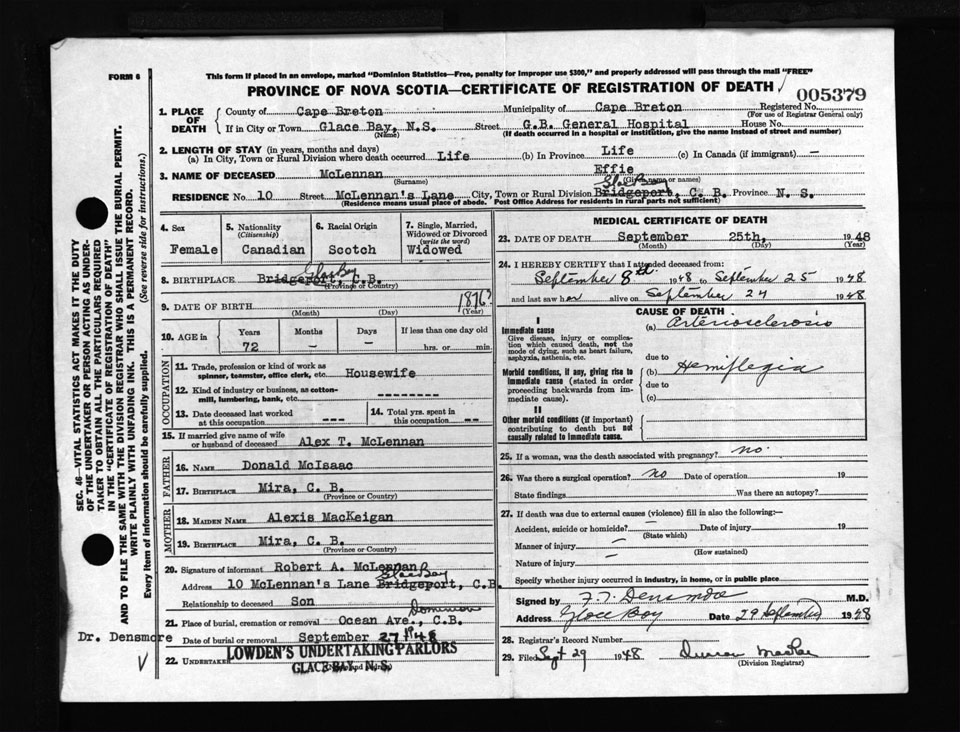 FORM 6
This form if placed in an envelope, marked "Dominion Statistics—Free, penalty for improper use $300," and properly addressed will pass through the mail "FREE"
PROVINCE OF NOVA SCOTIA—CERTIFICATE OF REGISTRATION OF DEATH
005379
1. PLACE OF DEATH
County of Cape Breton Municipality of Cape Breton Registered No.
(For use of Registrar General only)
If in City or Town Glace Bay, N.S. Street G.B. General Hospital House No.
(Name) (If death occurred in a hospital or institution, give the name instead of street and number)
2. LENGTH OF STAY (in years, months and days)
(a) In City, Town or Rural Division where death occurred Life (b) In Province Life (c) In Canada (if immigrant) —
3. NAME OF DECEASED McLennan Effie
(Surname) (Given name or names)
Glace Bay
RESIDENCE No. 10 Street McLennan's Lane City, Town or Rural Division Bridgeport, C. B. Province N. S.
(Residence means usual place of abode. Post Office Address for residents in rural parts not sufficient)
4. Sex Female
5. Nationality (Citizenship) Canadian
6. Racial Origin Scotch
7. Single, Married, Widowed or Divorced (write the word) Widowed
Glace Bay
8. BIRTHPLACE Bridgeport, C.B.
(Province or Country)
9. DATE OF BIRTH 1876?
(Month) (Day) (Year)
10. AGE in Years 72 Months — Days — If less than one day old hrs. or min.
OCCUPATION
11. Trade, profession or kind of work as spinner, teamster, office clerk, etc. Housewife
12. Kind of industry or business, as cotton-mill, lumbering, bank, etc. ----------
13. Date deceased last worked at this occupation ---
14. Total yrs. spent in this occupation --
15. If married give name of wife or husband of deceased Alex T. McLennan
FATHER
16. NAME Donald McIsaac
17. BIRTHPLACE Mira, C. B.
(Province or Country)
MOTHER
18. MAIDEN NAME Alexis MacKeigan
19. BIRTHPLACE Mira, C. B.
(Province or Country)
20. Signature of informant Robert A. McLennan
Glace Bay
Address 10 McLennan's Lane Bridgeport, C.B.
Relationship to deceased Son
Dominion
21. Place of burial, cremation or removal Ocean Ave., C.B.
Date of burial or removal September 27 1948
22. UNDERTAKER LOWDEN'S UNDERTAKING PARLORS
GLACE BAY, N.S.
Dr. Densmore
MEDICAL CERTIFICATE OF DEATH
23. DATE OF DEATH September 25th, 1948
(Month) (Day) (Year)
24. I HEREBY CERTIFY that I attended deceased from:
September 8th 1948 to September 25 1948
and last saw her alive on September 24 1948
CAUSE OF DEATH
I
Immediate cause (a) Arteriosclerosis
Give disease, injury or complication which caused death, not the mode of dying, such as heart failure, asphyxia, asthenia, etc.
due to
Morbid conditions, if any, giving rise to immediate cause (stated in order proceeding backwards from immediate cause).
(b) Hemiplegia
due to
(c)
II
Other morbid conditions (if important) contributing to death but not causally related to immediate cause.
25. If a woman, was the death associated with pregnancy? no.
26. Was there a surgical operation? no Date of operation 19
State findings Was there an autopsy?
27. If death was due to external causes (violence) fill in also the following:—
Accident, suicide or homicide? — Date of injury 19
(State which)
Manner of injury —
(How sustained)
Nature of injury —
Specify whether injury occurred in industry, in home, or in public place
Signed by F. T. Densmore M.D.
Address Glace Bay Date 29 September 1948
28. Registrar's Record Number
29. Filed Sept 29 1948 Duncan MacRae
(Division Registrar)
SEC. 46—VITAL STATISTICS ACT MAKES IT THE DUTY
OF THE UNDERTAKER OR PERSON ACTING AS UNDERTAKER TO OBTAIN ALL THE PARTICULARS REQUIRED
IN THE "CERTIFICATE OF REGISTRATION OF DEATH"
AND TO FILE THE SAME WITH THE DIVISION REGISTRAR WHO SHALL ISSUE THE BURIAL PERMIT.
WRITE PLAINLY WITH UNFADING INK. THIS IS A PERMANENT RECORD.
Every item of information should be carefully supplied. (See reverse side for instructions.)